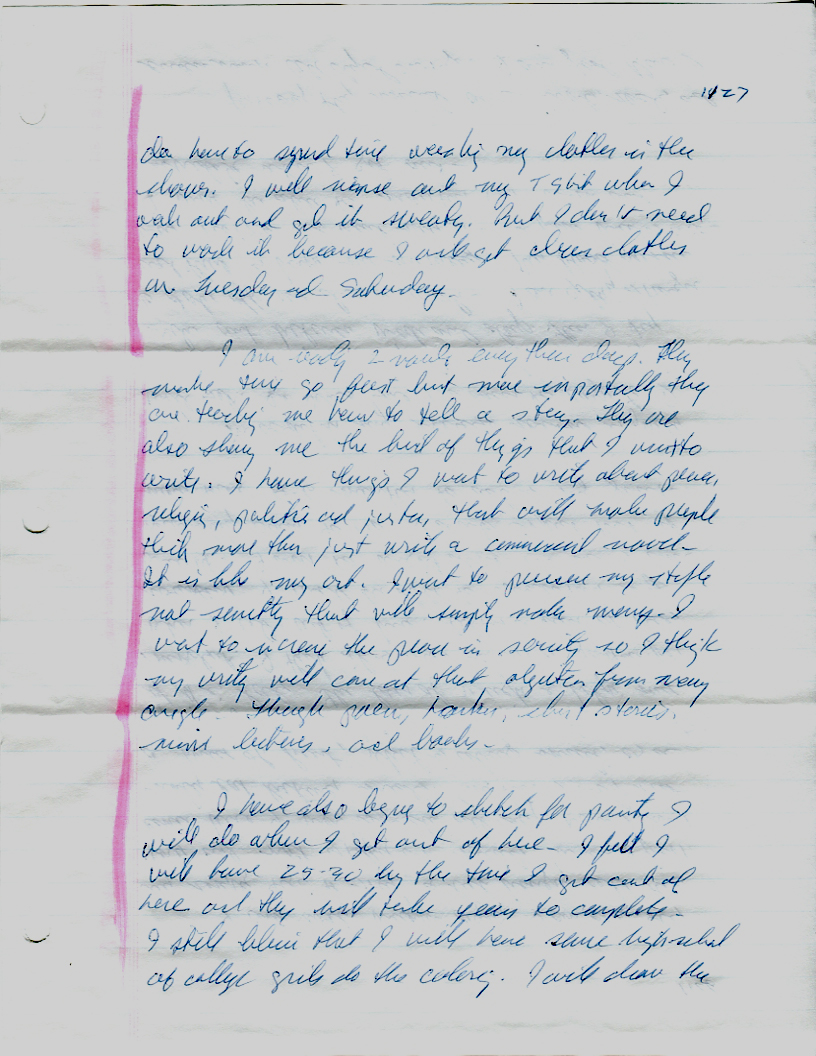 11/27
do have to spend time washing my clothes in the
shower. I will rinse out my T Shirt when I
work out and get it sweaty. But I don't need
to wash it because I will get clean clothes
on Tuesday and Saturday.
I am reading 2 novels every three days. They
make time go fast but more importantly they
are teaching me how to tell a story. They are
also showing me the kind of things that I want to
write. I have things I want to write about peace,
religion, politics and justice, that will make people
think more than just write a commercial novel-
It is like my art. I want to pursue my style
not something that will simply make money. I
want to increase the peace in society so I think
my writing will come at that objective from many
angles. Through poems, short stories,
movie lectures, and books-
I have also begun to sketch for painting I
will do when I get out of here- I feel I
will have 25-30 by the time I get out of
here and they will take years to complete-
I still believe that I will have some high school
or college girls do the coloring. I will draw the